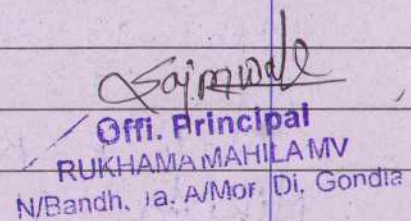 Offi. Principal
RUKHAMA MAHILA MV
N/Bandh. A/Mor Di. Gondia